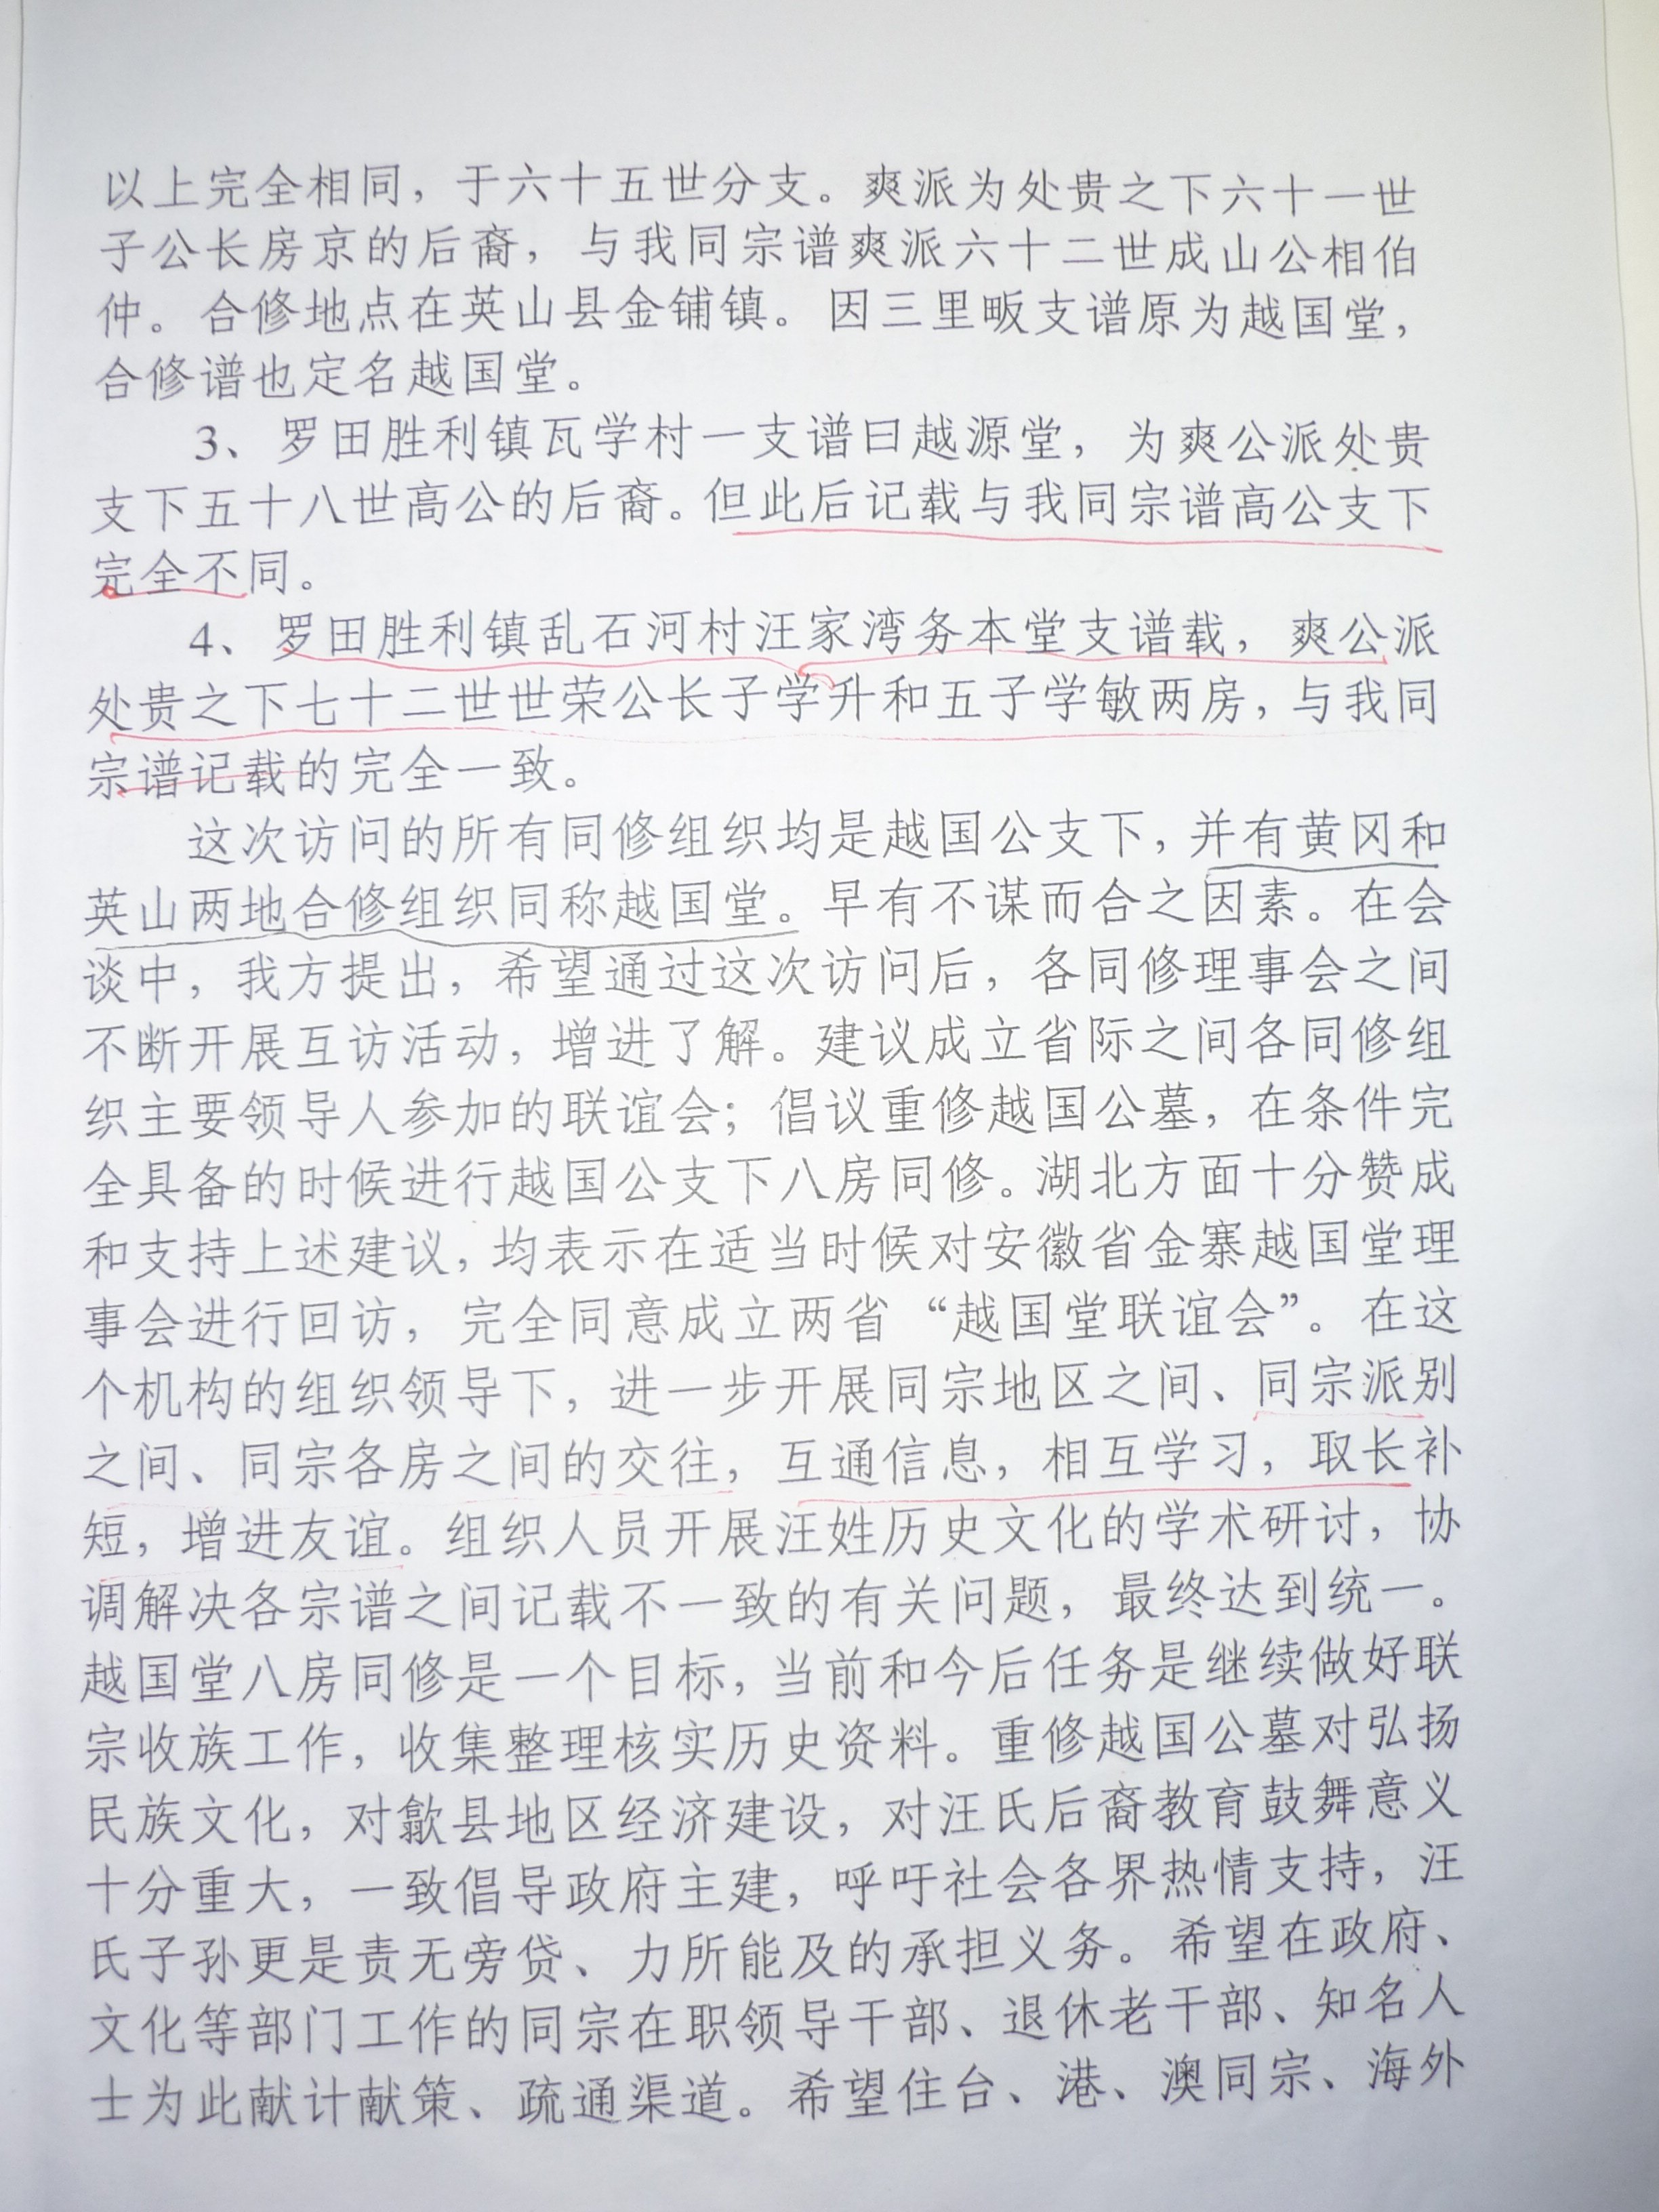 以上完全相同，于六十五世分支。爽派为处贵之下六十一世
子公长房京的后裔，与我同宗谱爽派六十二世成山公相伯
仲。合修地点在英山县金铺镇。因三里畈支谱原为越国堂，
合修谱也定名越国堂。
3、罗田胜利镇瓦学村一支谱曰越源堂，为爽公派处贵
支下五十八世高公的后裔。但此后记载与我同宗谱高公支下
完全不同。
4、罗田胜利镇乱石河村汪家湾务本堂支谱载，爽公派
处贵之下七十二世世荣公长子学升和五子学敏两房，与我同
宗谱记载的完全一致。
这次访问的所有同修组织均是越国公支下，并有黄冈和
英山两地合修组织同称越国堂。早有不谋而合之因素。在会
谈中，我方提出，希望通过这次访问后，各同修理事会之间
不断开展互访活动，增进了解。建议成立省际之间各同修组
织主要领导人参加的联谊会；倡议重修越国公墓，在条件完
全具备的时候进行越国公支下八房同修。湖北方面十分赞成
和支持上述建议，均表示在适当时候对安徽省金寨越国堂理
事会进行回访，完全同意成立两省“越国堂联谊会”。在这
个机构的组织领导下，进一步开展同宗地区之间、同宗派别
之间、同宗各房之间的交往，互通信息，相互学习，取长补
短，增进友谊。组织人员开展汪姓历史文化的学术研讨，协
调解决各宗谱之间记载不一致的有关问题，最终达到统一。
越国堂八房同修是一个目标，当前和今后任务是继续做好联
宗收族工作，收集整理核实历史资料。重修越国公墓对弘扬
民族文化，对歙县地区经济建设，对汪氏后裔教育鼓舞意义
十分重大，一致倡导政府主建，呼吁社会各界热情支持，汪
氏子孙更是责无旁贷、力所能及的承担义务。希望在政府、
文化等部门工作的同宗在职领导干部、退休老干部、知名人
士为此献计献策、疏通渠道。希望住台、港、澳同宗、海外